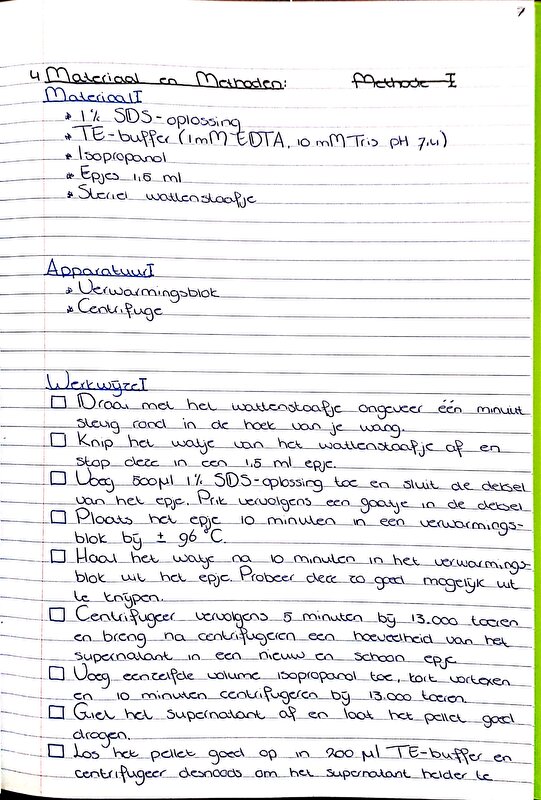 7
4 Materiaal en Methoden: Methode I
Materiaal I
* 1% SDS-oplossing
* TE-buffer (1mM EDTA, 10 mM Tris pH 7,4)
* Isopropanol
* Epjes 1,5 ml
* Steriel wattenstaafje
Apparatuur I
* Verwarmingsblok
* Centrifuge
Werkwijze I
Draai met het wattenstaafje ongeveer één minuut
stevig rond in de hoek van je wang.
Knip het watje van het wattenstaafje af en
stop deze in een 1,5 ml epje.
Voeg 500µl 1% SDS-oplossing toe en sluit de deksel
van het epje. Prik vervolgens een gaatje in de deksel
Plaats het epje 10 minuten in een verwarmings-
blok bij ± 96 °C.
Haal het watje na 10 minuten in het verwarmings-
blok uit het epje. Probeer deze zo goed mogelijk uit
te knijpen.
Centrifugeer vervolgens 5 minuten bij 13.000 toeren
en breng na centrifugeren een hoeveelheid van het
supernatant in een nieuw en schoon epje
Voeg eenzelfde volume isopropanol toe, kort vortexen
en 10 minuten centrifugeren bij 13.000 toeren.
Giet het supernatant af en laat het pellet goed
drogen.
Los het pellet goed op in 200 µl TE-buffer en
centrifugeer desnoods om het supernatant helder te